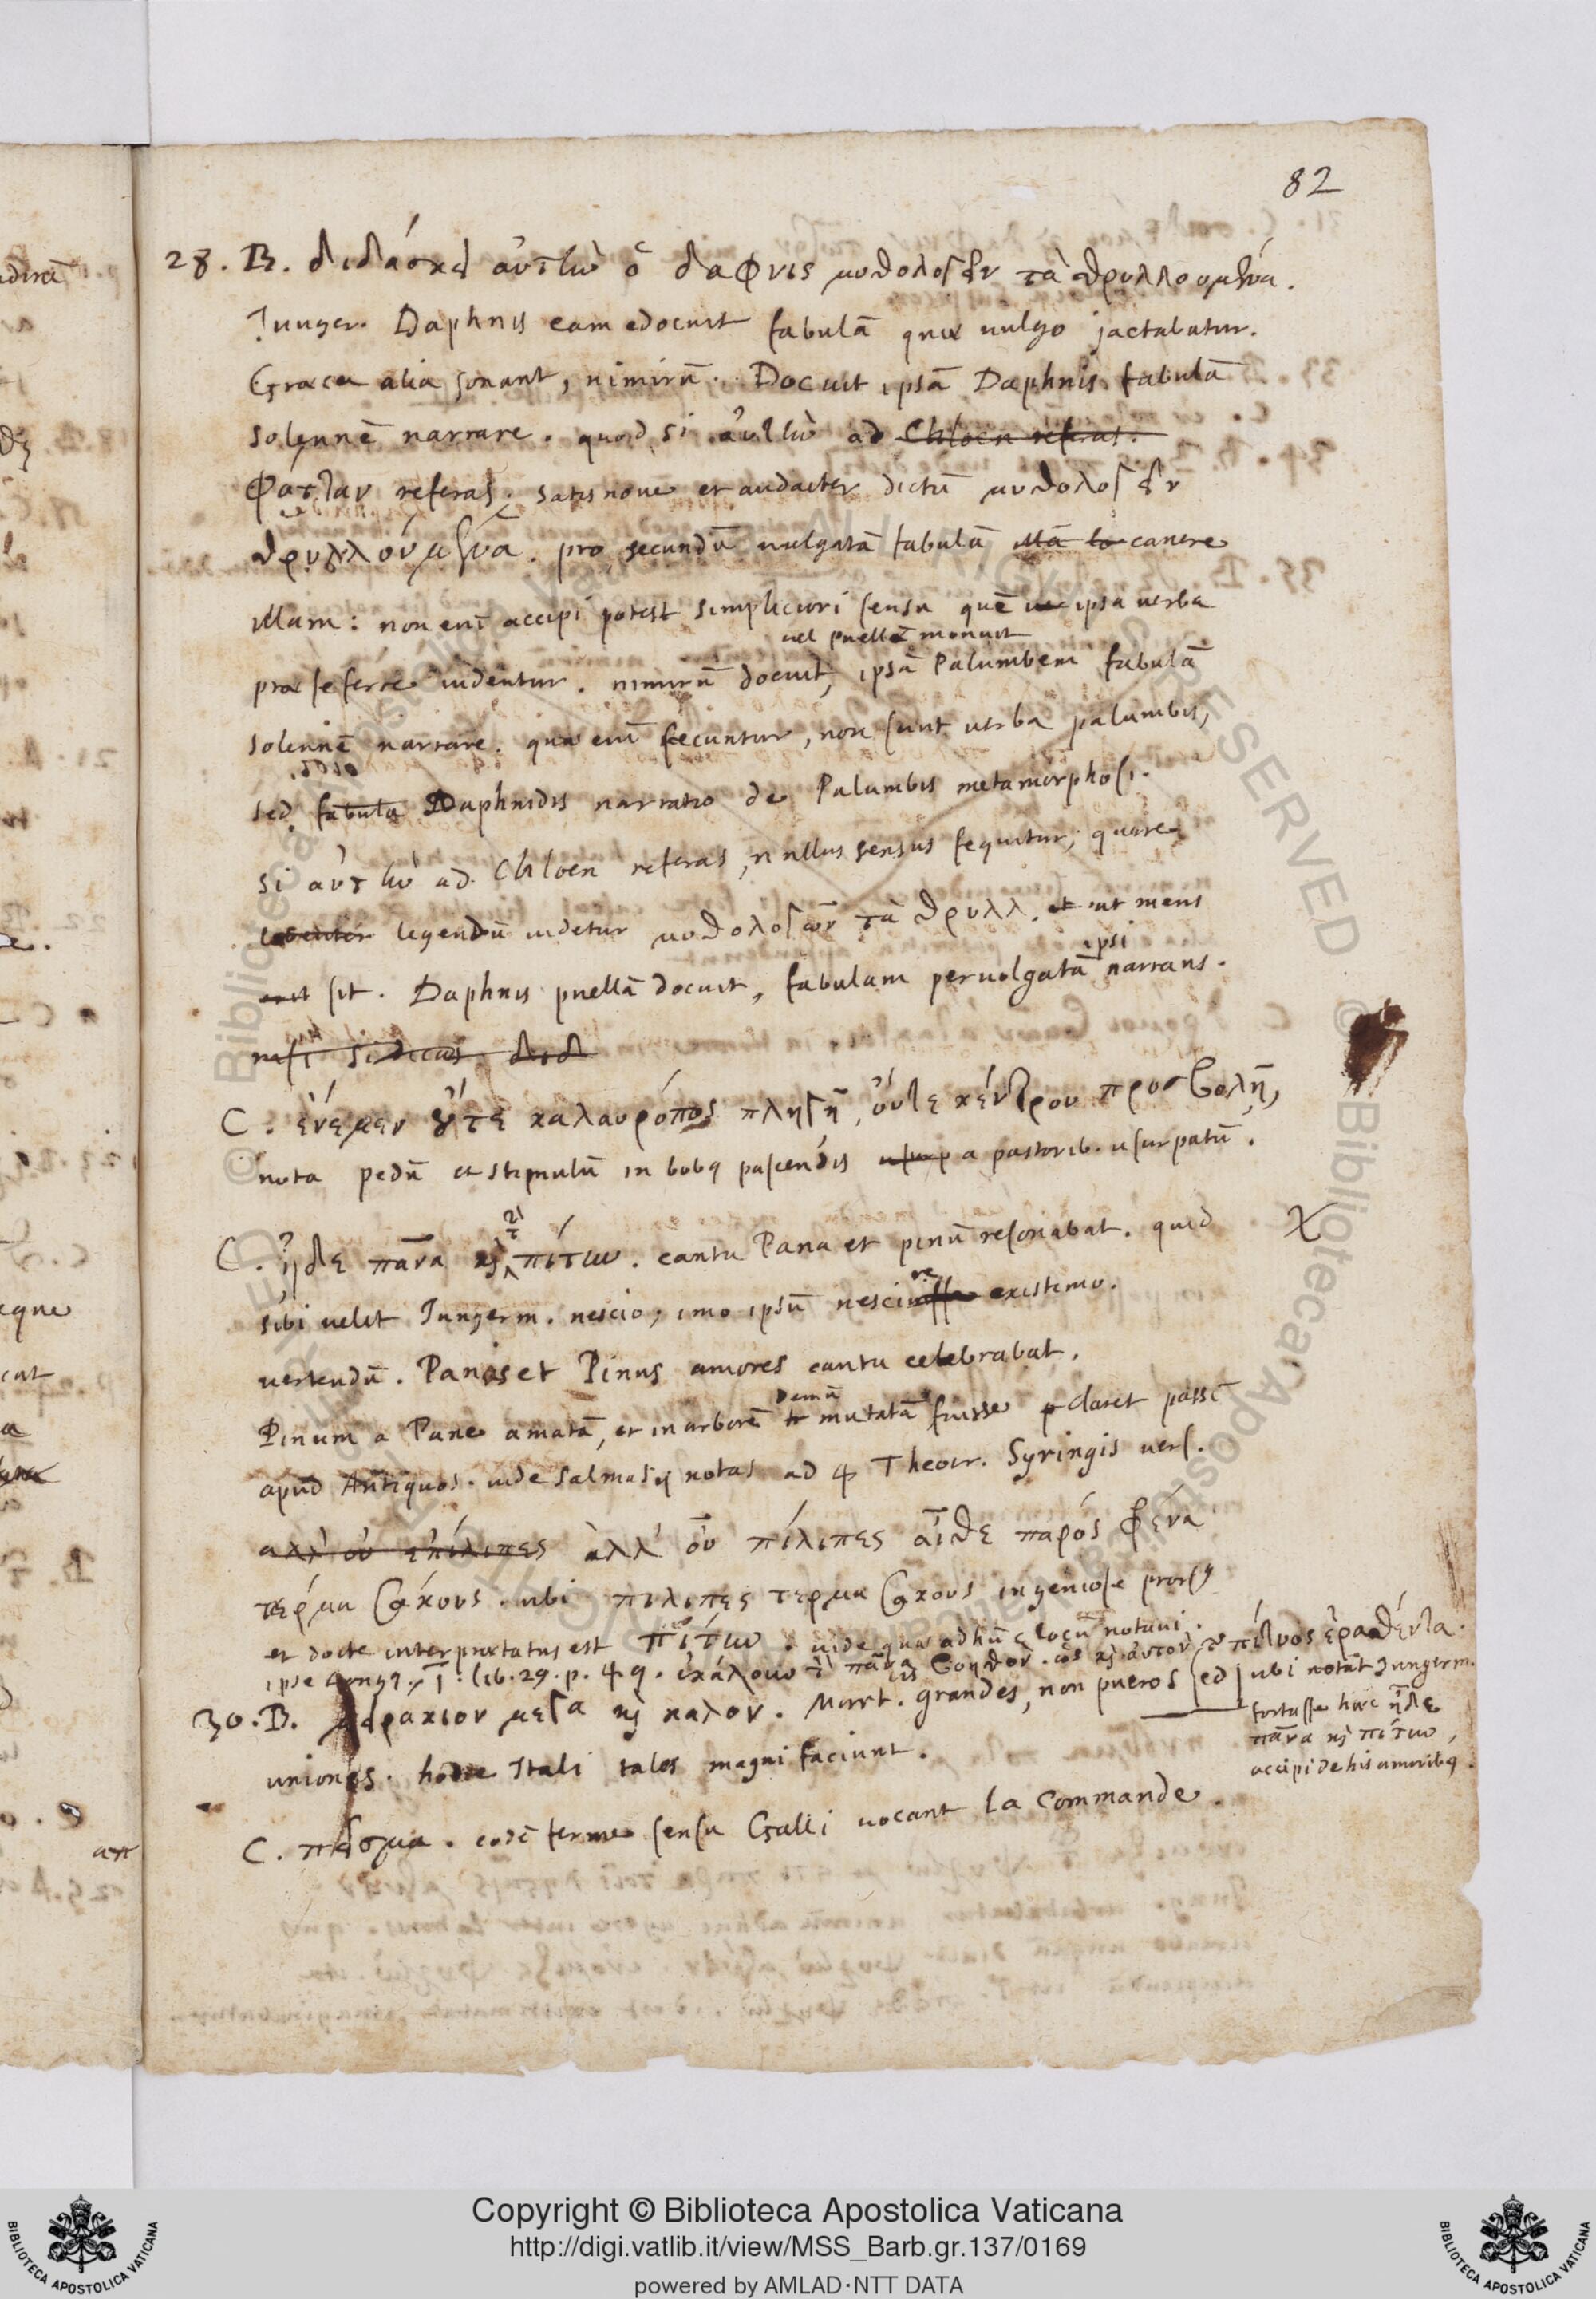 82
28. B. διδάσκει αὐτὴν ὁ δαφνις μυθολογεῖν τὰ θρυλλουμενα.
Junger. Daphnis eam edocuit fabulā quæ uulgo jactabatur.
Græca alia sonant, nimirū. Docuit ipsā Daphnis fabulā
solennē narrare. quod si αὐτὴν ad Chloen referas.
φατταν referas. satis noue et audacter dictū μυθολογεῖν
θρυλλούμενα. pro secundū uulgatā fabulā illā canere
illam: non eni accipi potest simpliciori sensu quē ipsa uerba
uel puellā monuit
præ se ferre uidentur. nimirū docuit, ipsā Palumbem fabulā
solennē narrare. quæ eni secuntur, non sunt uerba palumbis,
sed fabula Daphnidis narratio de Palumbis metamorphosi.
si αὐτὴν ad Chloen referas, nullus sensus sequitur; quare
legendū uidetur μυθολογῶν τὰ θρυλλ. et ut mens
ipsi
sit. Daphnis puellā docuit, fabulam peruolgatā narrans.
nisi si dicas
C. ἐνέμεν ȣ̓́τε καλαυρόπος πληγῇ, οὔτε κέντρου προσβολῇ,
nota pedū et stimulū in bobq pascendis a pastorib. usurpatū.
C. ἦδε πᾶνα κϳ πίτυν. cantu Pana et pinū resonabat. quid X
sibi uelit Jungerm. nescio, imo ipsū nescire existimo.
uertendū. Panis et Pinus amores cantu celebrabat.
Demū
Pinum a Pane amatā, et in arborē mutatā fuisse claret passī
apud Antiquos. uide Salmasij notas ad Theocr. Syringis uers.
αλλ' οὐ πίλιπες ἀλλ' οὗ πίλιπες αἶθε παρός φένα
τέρμα σάκους. ubi πιλιπες τερμα σακους ingeniose prorsq
et docte interpretatus est πίτυν. uide quæ ad hūc locū notaui.
ipse Longq. lib. 29. p. 49. ἐκάλουν τὸ πᾶνα βοηθόν. ὡς κϳ αὐτόν πίτυος ἐρασθέντα.
ubi notāt Jungerm.
fortasse hæc ἦδε
πᾶνα κϳ πίτυν,
accipi de his amoribq.
30. B. μειρακιον μεγα κϳ καλον. Mart. grandes, non pueros sed
uniones. hodie Itali tales magni faciunt.
C. πεῖσμα. eodē ferme sensu Galli uocant la Commande.
Copyright © Biblioteca Apostolica Vaticana
http://digi.vatlib.it/view/MSS_Barb.gr.137/0169
powered by AMLAD·NTT DATA
BIBLIOTECA APOSTOLICA VATICANA
BIBLIOTECA APOSTOLICA VATICANA